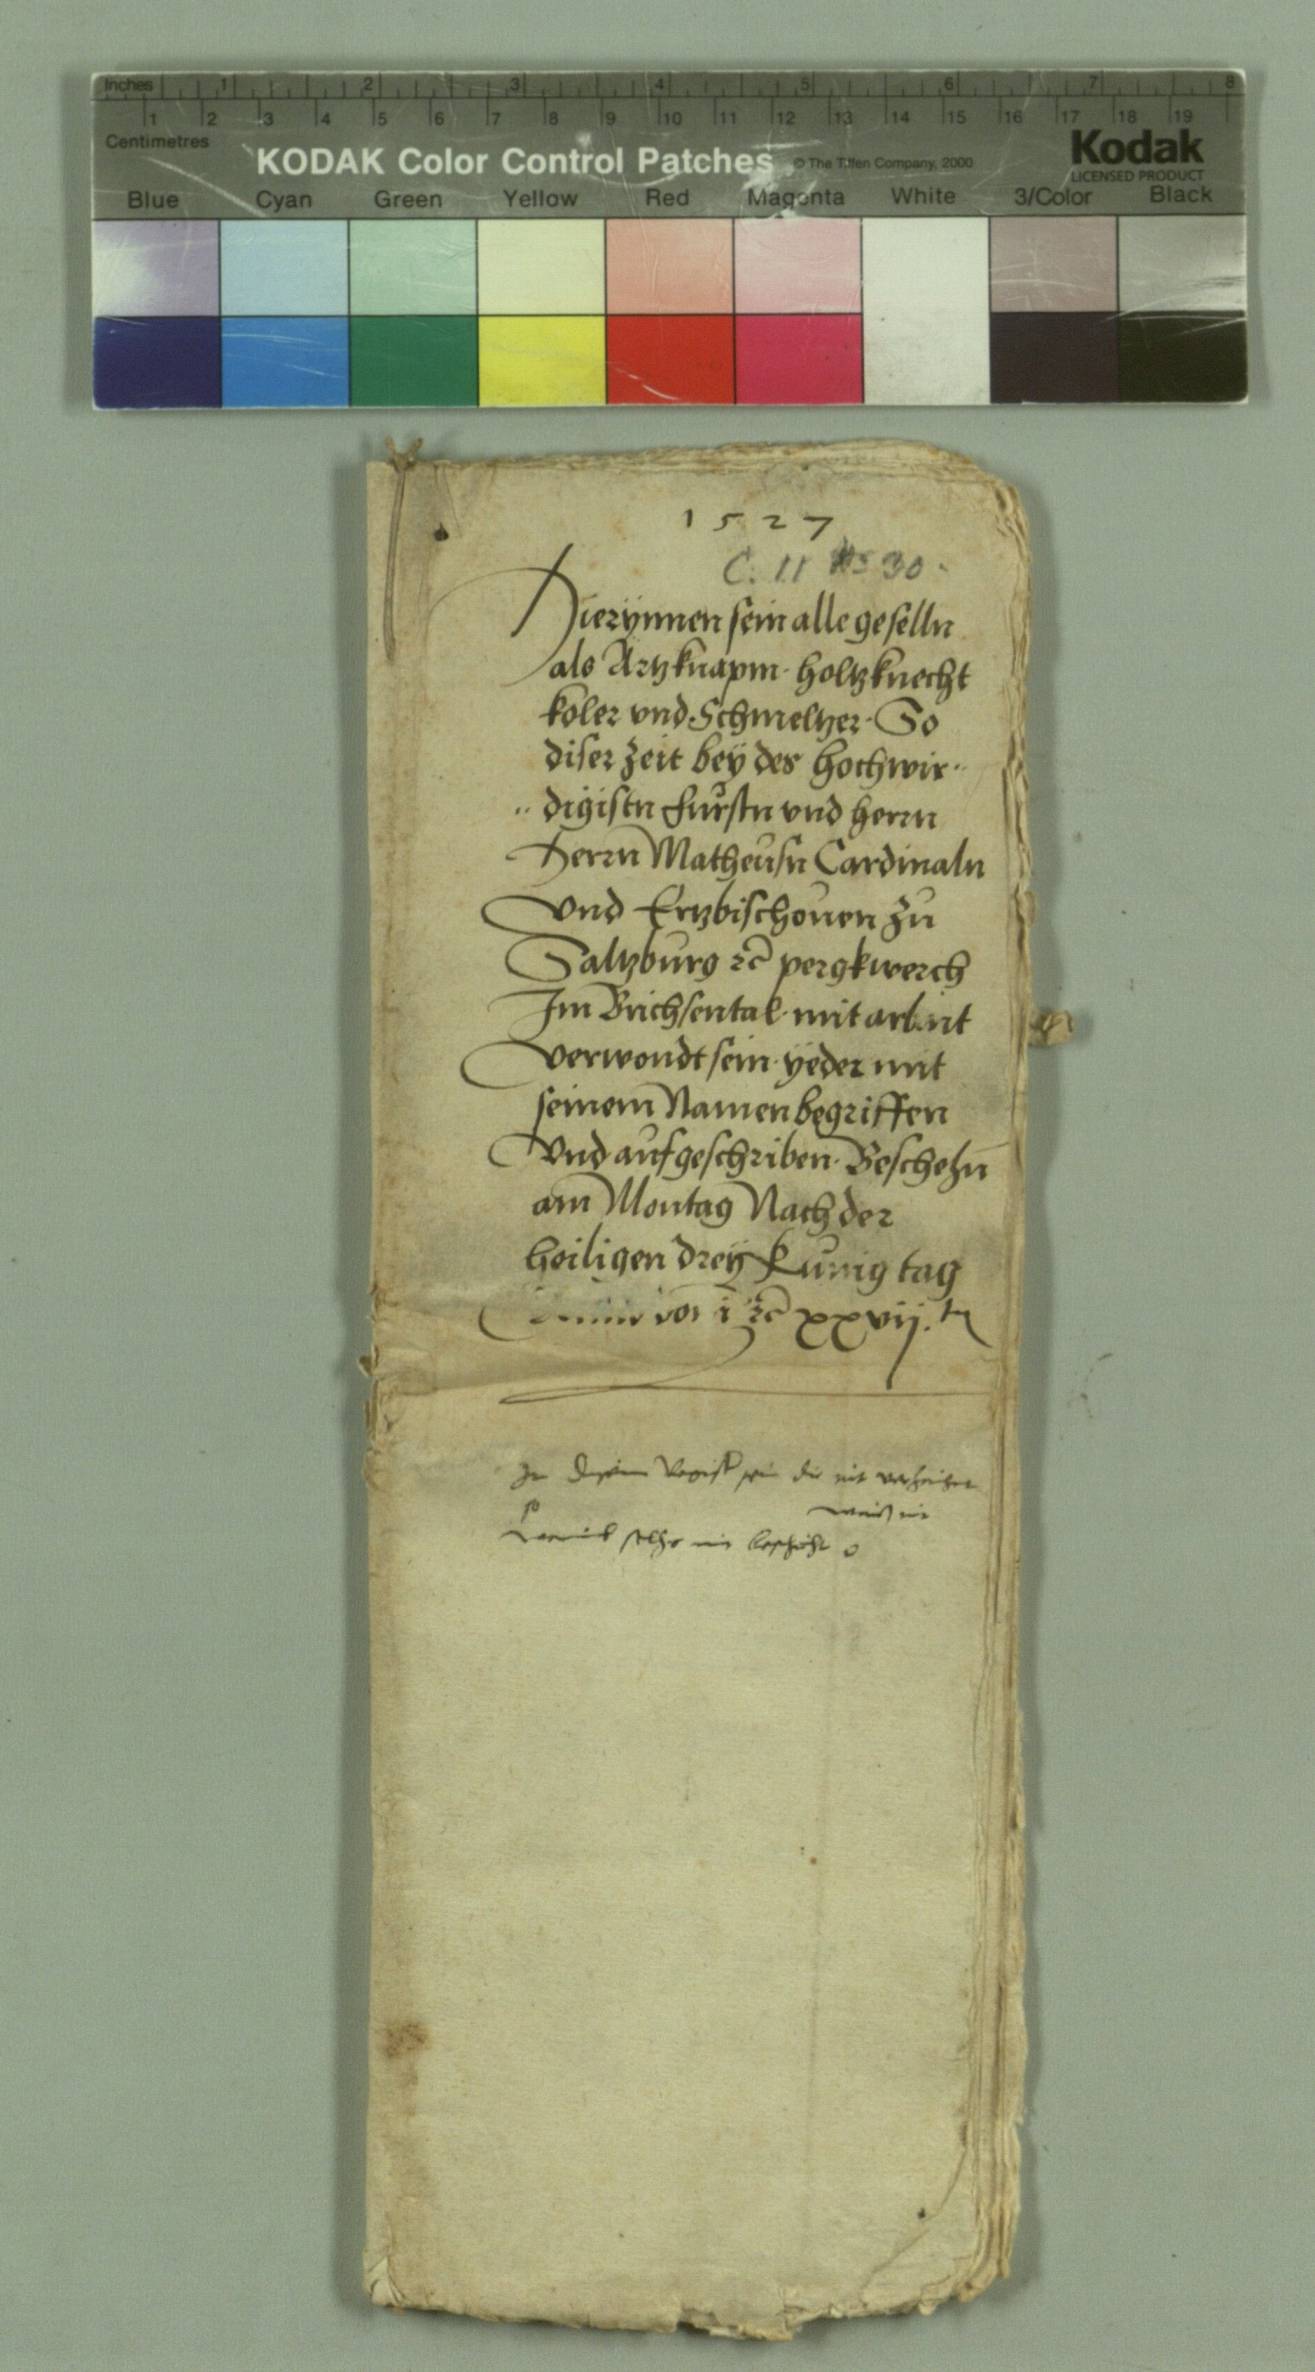 Inches 1 2 3 4 5 6 7 8
1 2 3 4 5 6 7 8 9 10 11 12 13 14 15 16 17 18 19
Centimetres
KODAK Color Control Patches © The Tiffen Company, 2000 Kodak
LICENSED PRODUCT
Blue Cyan Green Yellow Red Magenta White 3/Color Black
1527
C. 11 No 30.
Hierÿnnen sein alle geselln
als Ärtzknapm· holtzknecht
koler vnd Schmeltzer· So
diser Zeit beÿ des hochwir··
·· digistn fürstn vnd herrn
Herrn Matheüsn Cardinaln
Vnd Ertzbischouen zu
Saltzburg ꝛc̄ pergkwerch
Im Brichsental· mit arbait
verwondt sein· ÿeder mit
seinem Namen begriffen
Vnd aufgeschriben· Beschehn
am Montag Nach der
heiligen dreÿ Kunig tag
ꝛc̄ xxvij.
In disem Regist sein die nit
so
solhs nit